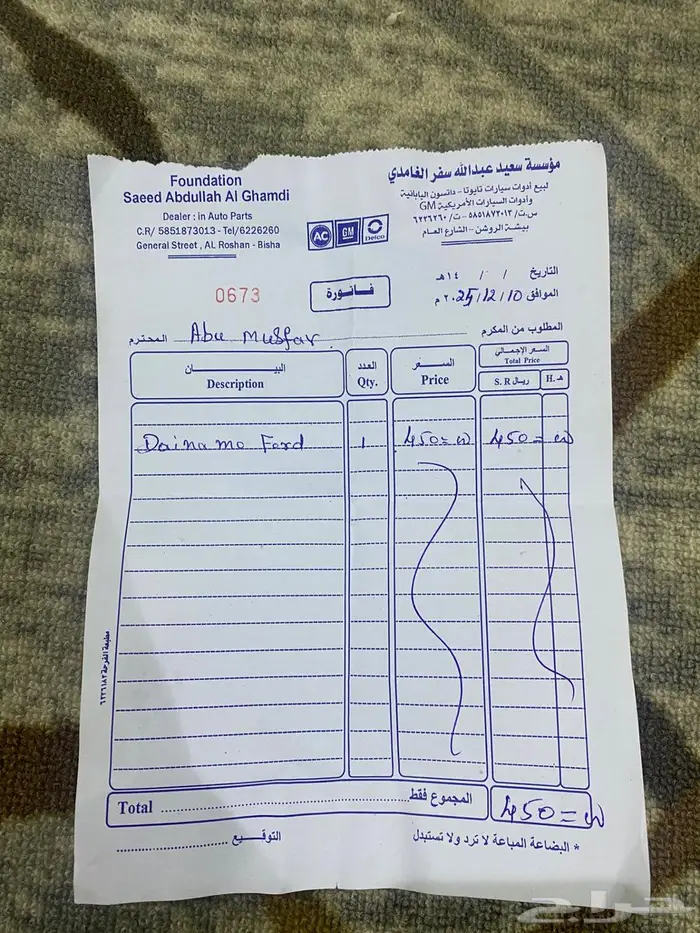 Foundation
Saeed Abdullah Al Ghamdi
Dealer : in Auto Parts
C.R/ 5851873013 - Tel/6226260
General Street , AL Roshan - Bisha
AC
GM
Delco
مؤسسة سعيد عبدالله سفر الغامدي
لبيع أدوات سيارات تايوتا - داتسون اليابانية
وأدوات السيارات الأمريكية GM
س.ت/ ٥٨٥١٨٧٣٠١٣ - ت/ ٦٢٢٦٢٦٠
بيشة الروشن - الشارع العام
0673
فاتورة
التاريخ / / ١٤هـ
الموافق 10/ 12/ ٢٠25 م
المطلوب من المكرم Abu Musfar المحترم
البيـــان
Description
العدد
Qty.
السعر
Price
السعر الإجمالي
Total Price
ريال S. R
هـ H.
Dainamo Ford 1 450= 450=
Total المجموع فقط 450=
* البضاعة المباعة لا ترد ولا تستبدل
التوقيع
مطبعة الفرحة ٦٢٢٦١٨٢
حراج